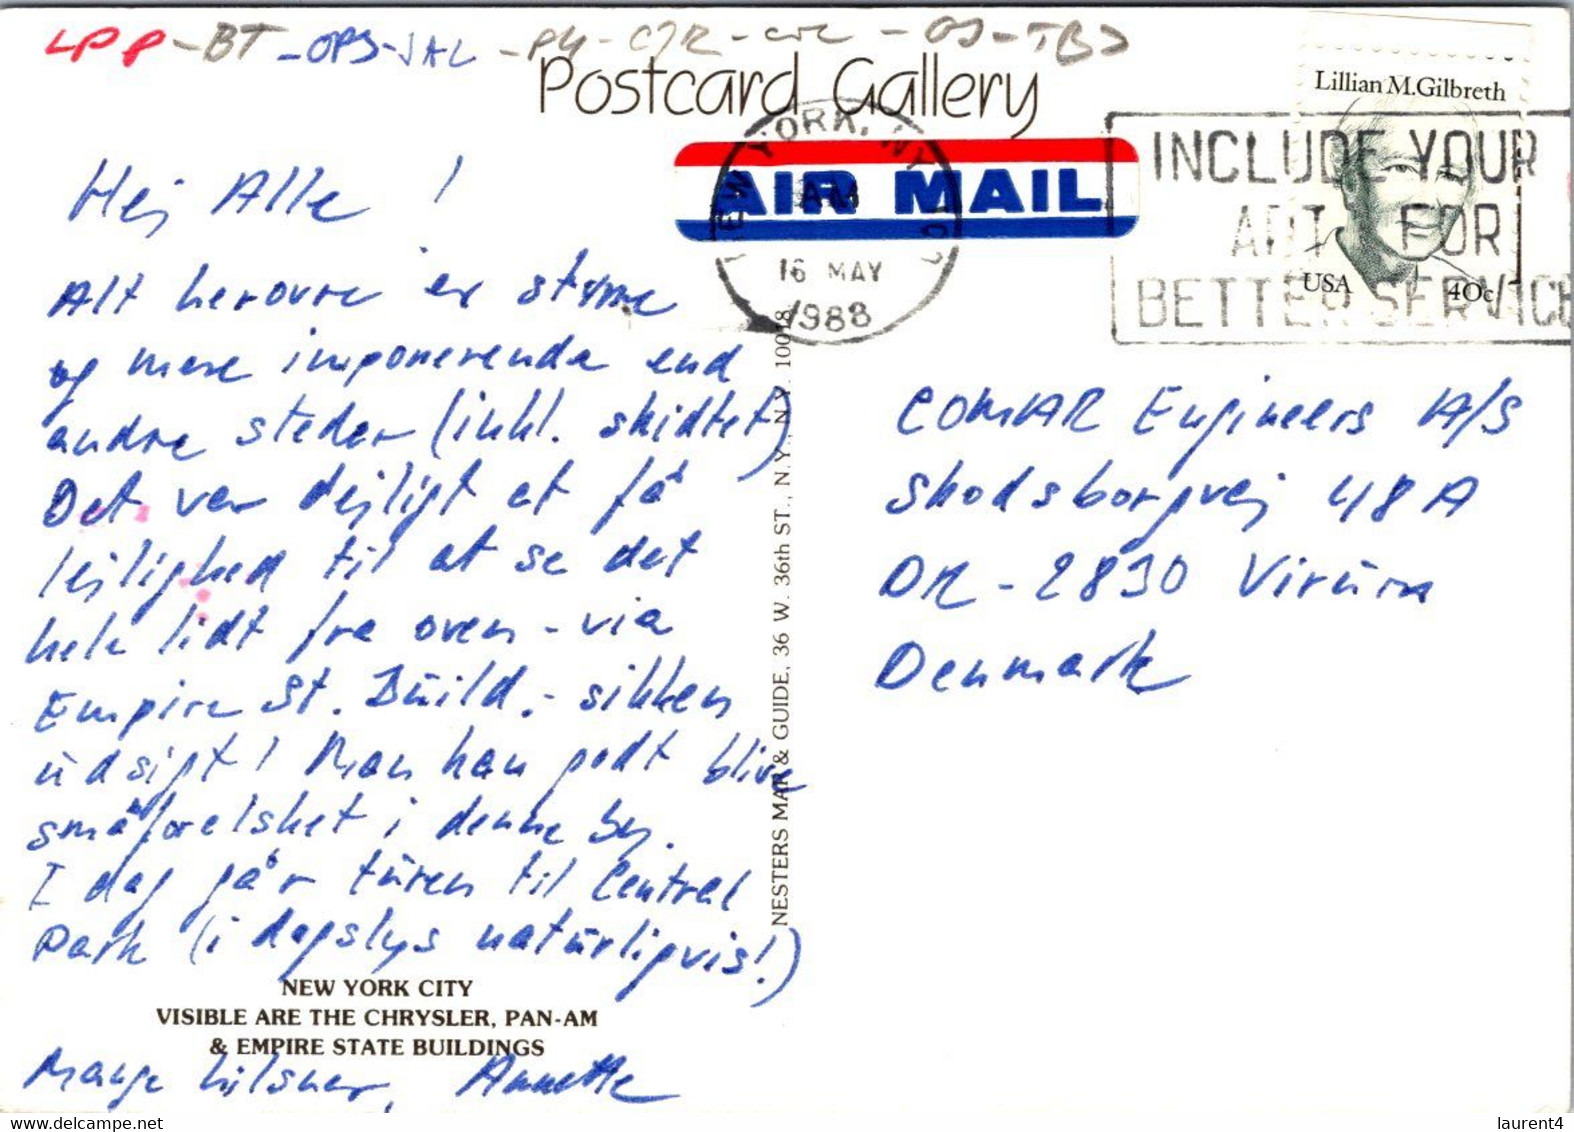 LPP-BT-OPS-JAL-PH-CJR-CVL-OJ-TBS
Postcard Gallery
Lillian M.Gilbreth
USA 40c
AIR MAIL
NEW YORK, NY
AM
16 MAY
1988
INCLUDE YOUR
APT FOR
BETTER SERVICE
Hej Alle !
Alt herovre er større
og mere imponerende end
andre steder (inkl. skidtet)
Det var dejligt at få
lejlighed til at se det
hele lidt fra oven - via
Empire St. Build. - sikken
udsigt! Man kan godt blive
småforelsket i denne by.
I dag går turen til Central
Park (i dagslys naturligvis!)
NEW YORK CITY
VISIBLE ARE THE CHRYSLER, PAN-AM
& EMPIRE STATE BUILDINGS
Mange hilsner, Annette
NESTERS MAP & GUIDE, 36 W. 36th ST., N.Y., N.Y. 10018
COMAR Engineers A/S
Skodsborgvej 48 A
DK - 2830 Virum
Denmark
www.delcampe.net
laurent4